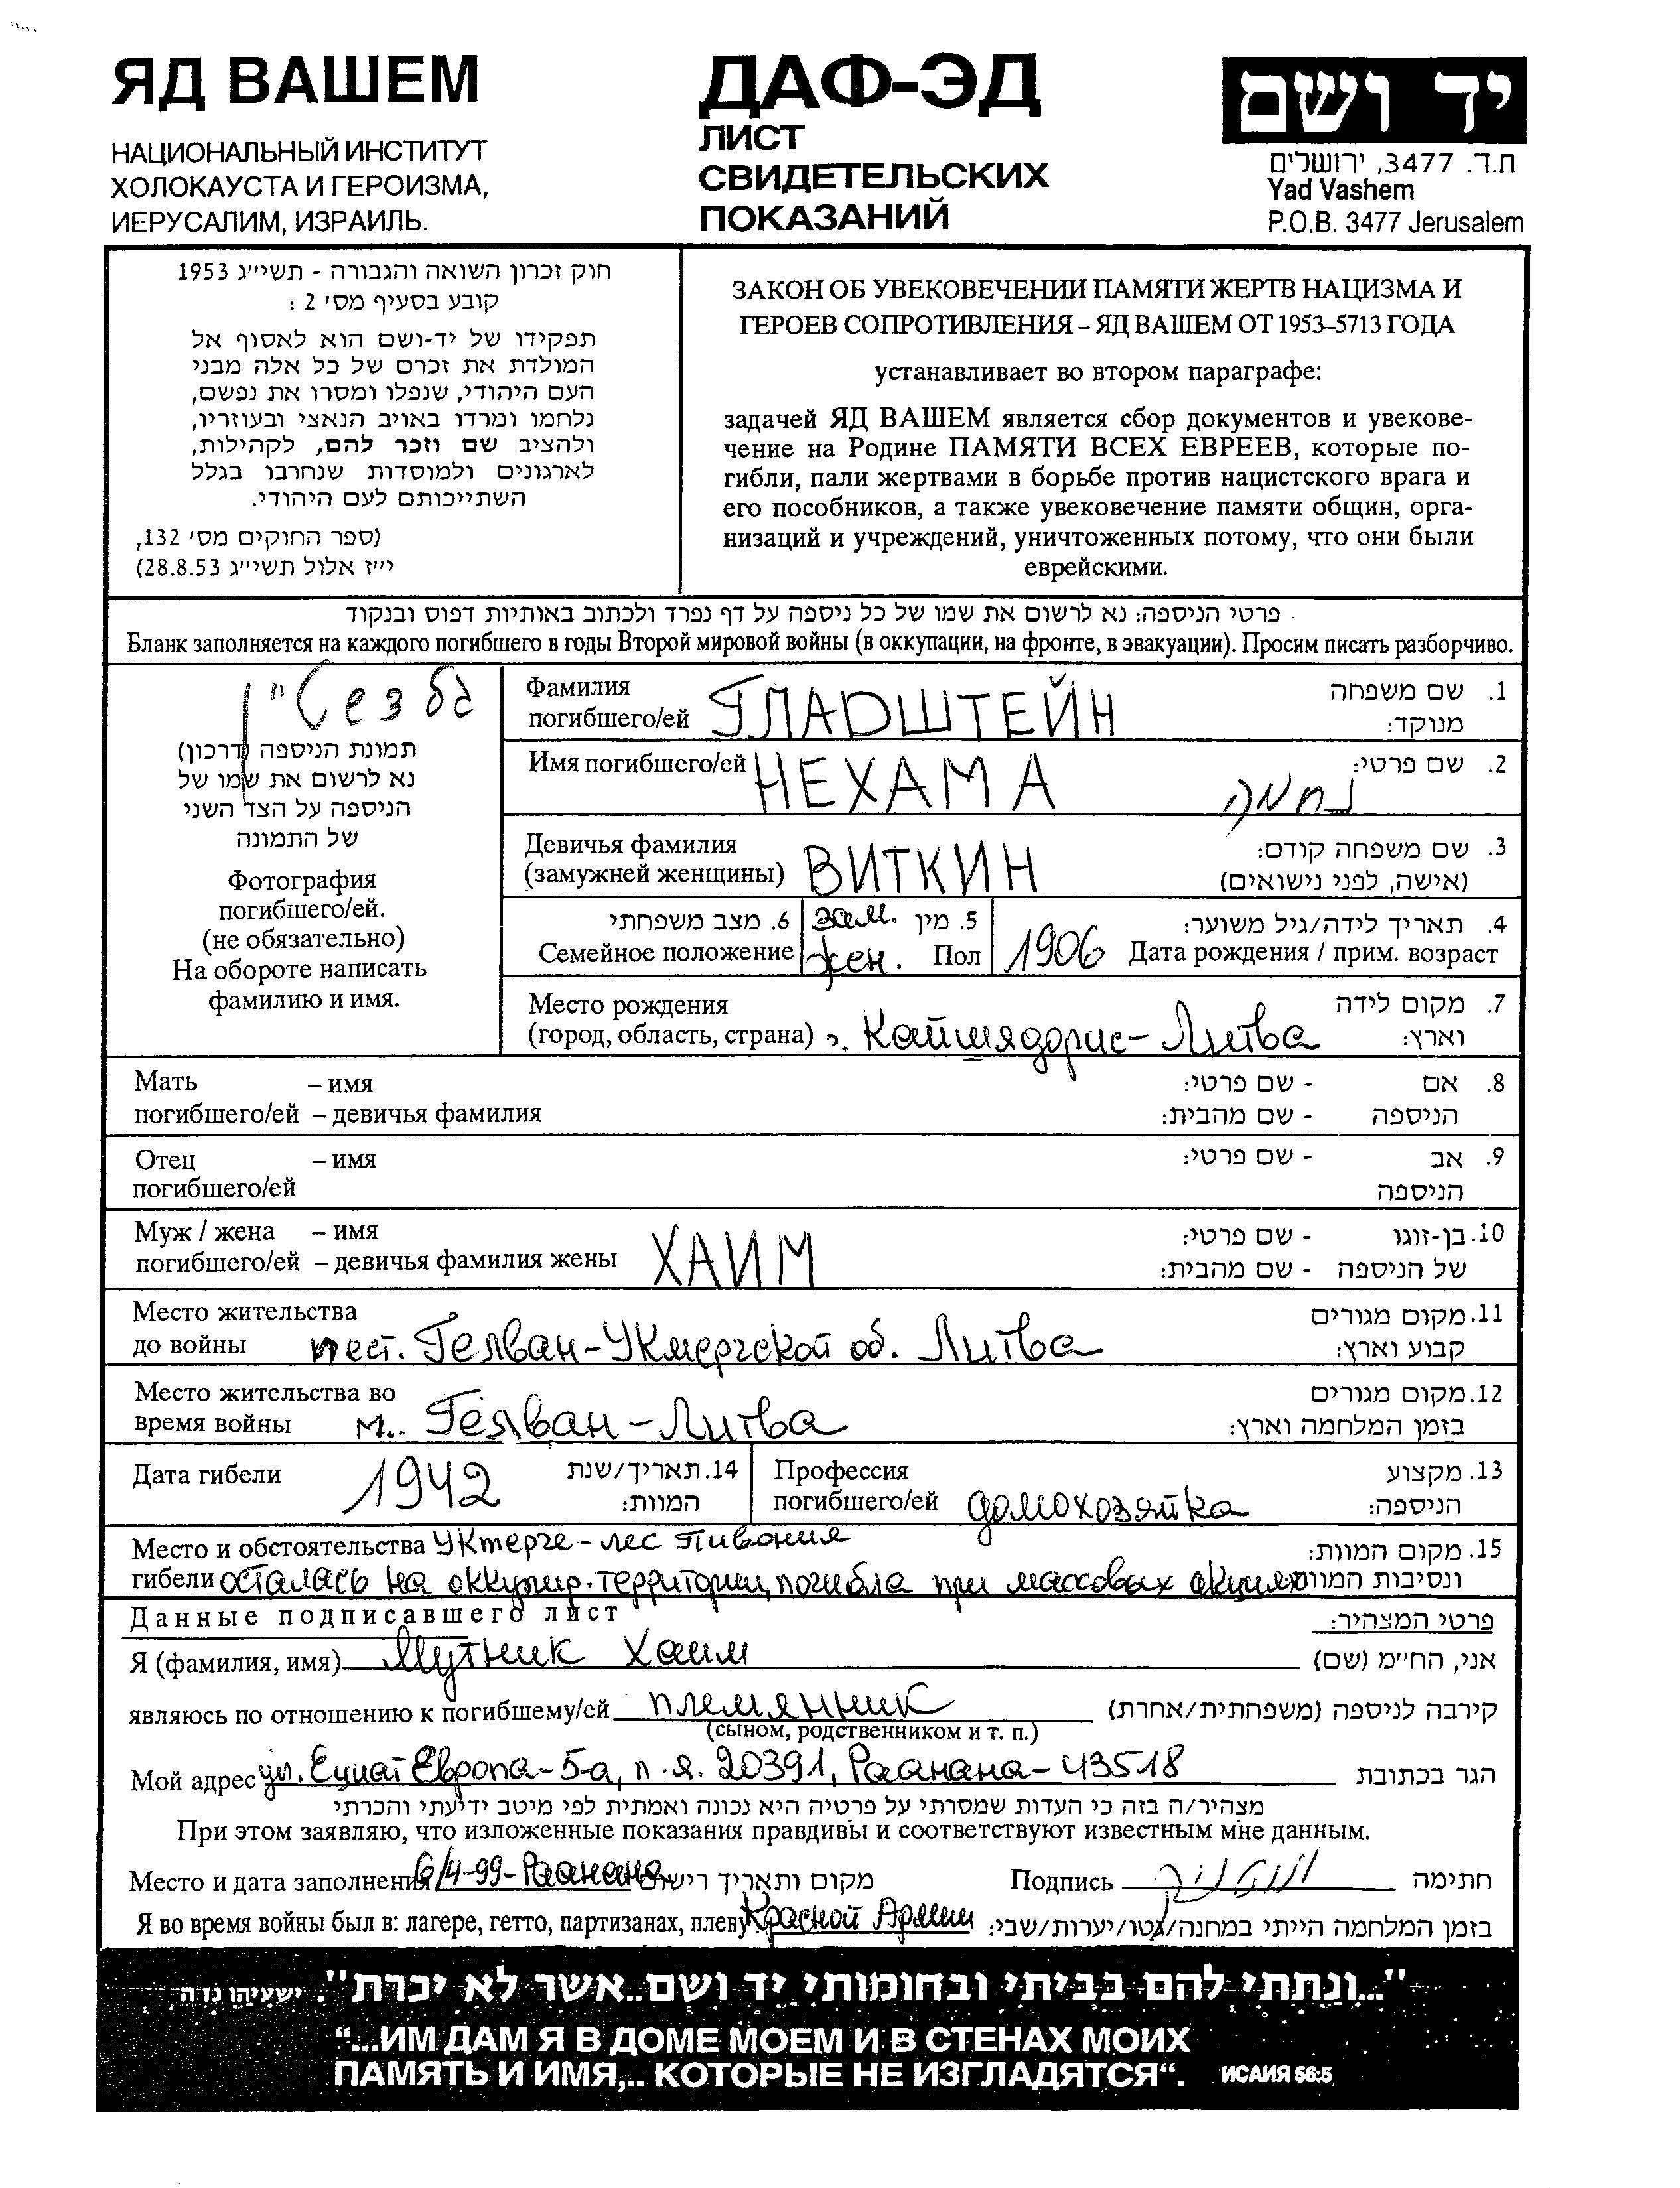 ЯД ВАШЕМ
НАЦИОНАЛЬНЫЙ ИНСТИТУТ
ХОЛОКАУСТА И ГЕРОИЗМА,
ИЕРУСАЛИМ, ИЗРАИЛЬ.
ДАФ-ЭД
ЛИСТ
СВИДЕТЕЛЬСКИХ
ПОКАЗАНИЙ
יד ושם
ת.ד. 3477, ירושלים
Yad Vashem
P.O.B. 3477 Jerusalem
חוק זכרון השואה והגבורה - תשי״ג 1953
קובע בסעיף מס׳ 2 :
תפקידו של יד-ושם הוא לאסוף אל
המולדת את זכרם של כל אלה מבני
העם היהודי, שנפלו ומסרו את נפשם,
נלחמו ומרדו באויב הנאצי ובעוזריו,
ולהציב שם וזכר להם, לקהילות,
לארגונים ולמוסדות שנחרבו בגלל
השתייכותם לעם היהודי.
(ספר החוקים מס׳ 132,
י״ז אלול תשי״ג 28.8.53)
ЗАКОН ОБ УВЕКОВЕЧЕНИИ ПАМЯТИ ЖЕРТВ НАЦИЗМА И
ГЕРОЕВ СОПРОТИВЛЕНИЯ – ЯД ВАШЕМ ОТ 1953–5713 ГОДА
устанавливает во втором параграфе:
задачей ЯД ВАШЕМ является сбор документов и увекове-
чение на Родине ПАМЯТИ ВСЕХ ЕВРЕЕВ, которые по-
гибли, пали жертвами в борьбе против нацистского врага и
его пособников, а также увековечение памяти общин, орга-
низаций и учреждений, уничтоженных потому, что они были
еврейскими.
פרטי הניספה: נא לרשום את שמו של כל ניספה על דף נפרד ולכתוב באותיות דפוס ובנקוד
Бланк заполняется на каждого погибшего в годы Второй мировой войны (в оккупации, на фронте, в эвакуации). Просим писать разборчиво.
תמונת הניספה (דרכון)
נא לרשום את שמו של
הניספה על הצד השני
של התמונה
Фотография
погибшего/ей.
(не обязательно)
На обороте написать
фамилию и имя.
Фамилия
погибшего/ей ГЛАДШТЕЙН
1. שם משפחה
מנוקד:
Имя погибшего/ей НЕХАМА נחמה 2. שם פרטי:
Девичья фамилия
(замужней женщины) ВИТКИН
3. שם משפחה קודם:
(אישה, לפני נישואים)
6. מצב משפחתי зам. 5. מין
Семейное положение жен. Пол
1906
4. תאריך לידה/גיל משוער:
Дата рождения / прим. возраст
Место рождения
(город, область, страна) г. Кайшядорис - Литва
7. מקום לידה
וארץ:
Мать – имя
погибшего/ей – девичья фамилия
8. אם - שם פרטי:
הניספה - שם מהבית:
Отец – имя
погибшего/ей
9. אב - שם פרטי:
הניספה
Муж / жена – имя
погибшего/ей – девичья фамилия жены ХАИМ
10. בן-זוגו - שם פרטי:
של הניספה - שם מהבית:
Место жительства
до войны мест. Гелван - Укмергской об. Литва
11. מקום מגורים
קבוע וארץ:
Место жительства во
время войны м. Гелван - Литва
12. מקום מגורים
בזמן המלחמה וארץ:
Дата гибели 1942
14. תאריך/שנת
המוות:
Профессия
погибшего/ей домохозяйка
13. מקצוע
הניספה:
Место и обстоятельства Укмерге - лес Пивония
гибели осталась на оккупир. территории, погибла при массовых акциях
15. מקום המוות:
ונסיבות המוות
Данные подписавшего лист פרטי המצהיר:
Я (фамилия, имя) Мутник Хаим אני, הח״מ (שם)
являюсь по отношению к погибшему/ей племянник קירבה לניספה (משפחתית/אחרת)
(сыном, родственником и т. п.)
Мой адрес ул. Ециат Европа - 5-а, п.я. 20391, Раанана - 43518 הגר בכתובת
מצהיר/ה בזה כי העדות שמסרתי על פרטיה היא נכונה ואמתית לפי מיטב ידיעתי והכרתי
При этом заявляю, что изложенные показания правдивы и соответствуют известным мне данным.
Место и дата заполнения 6/4-99 - Раанана מקום ותאריך רישום Подпись חתימה
Я во время войны был в: лагере, гетто, партизанах, плену Красной Армии בזמן המלחמה הייתי במחנה/גטו/יערות/שבי:
"...ונתתי להם בביתי ובחומותי יד ושם..אשר לא יכרת". ישעיהו נו ה
“...ИМ ДАМ Я В ДОМЕ МОЕМ И В СТЕНАХ МОИХ
ПАМЯТЬ И ИМЯ,.. КОТОРЫЕ НЕ ИЗГЛАДЯТСЯ“. ИСАИЯ 56:5